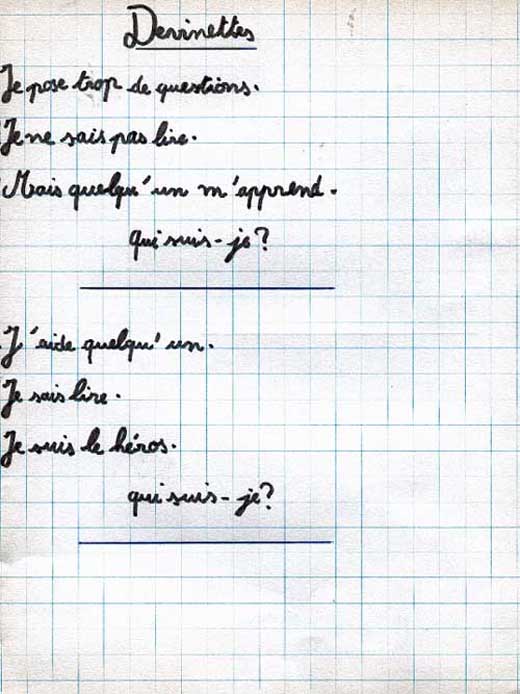 Devinettes
Je pose trop de questions.
Je ne sais pas lire.
Mais quelqu'un m'apprend.
qui suis-je?
J'aide quelqu'un.
Je sais lire.
Je suis le héros.
qui suis-je?